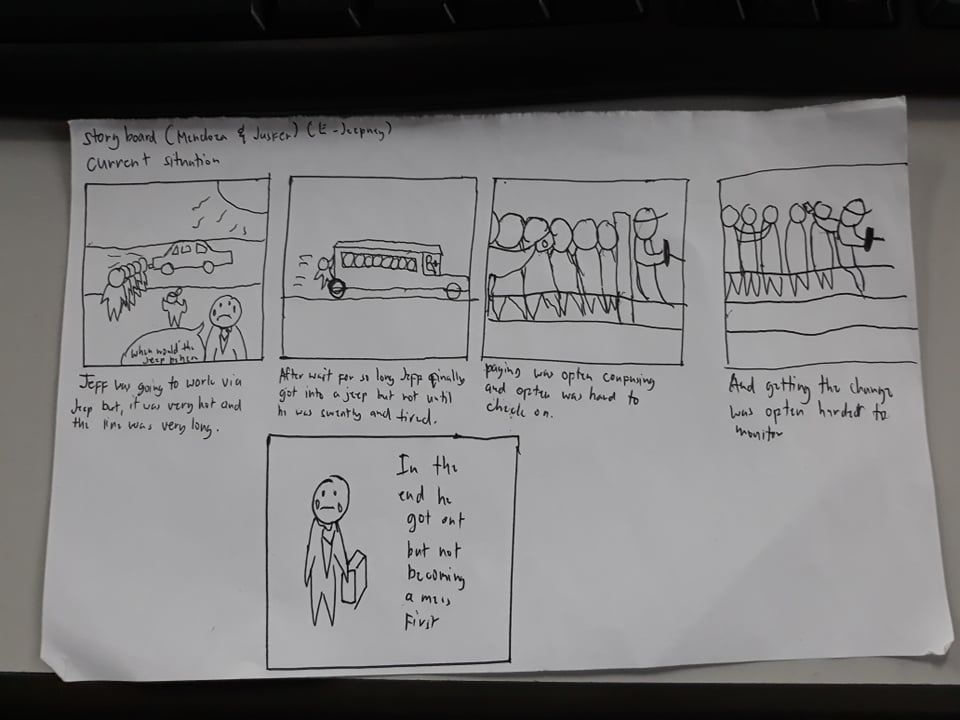 Story board (Mendoza & Jusfer) (E-Jeepney)
Current situation
When would the
Jeep
Jeff was going to work via
Jeep but, it was very hot and
the line was very long.
After wait for so long Jeff finally
got into a jeep but not until
he was sweaty and tired.
paying was often confusing
and often was hard to
check on.
And getting the change
was often harder to
monitor
In the
end he
got out
but not
becoming
a mess
First